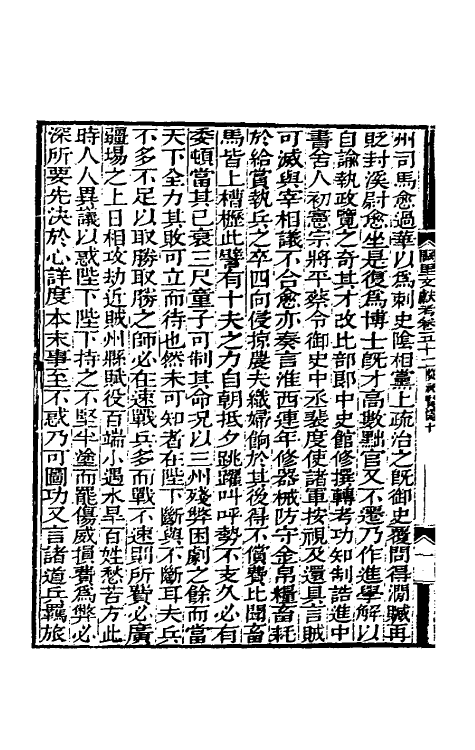 州司馬愈過華以爲刺史陰相黨上疏治之既御史覆問得澗贓再
貶封溪尉愈坐是復爲博士既才高數黜官又不遷乃作進學解以
自諭執政覽之奇其才改比部郎中史館修撰轉考功知制誥進中
書舍人初憲宗將平蔡令御史中丞裴度使諸軍按視及還具言賊
可滅與宰相議不合愈亦奏言淮西連年修器械防守金帛糧畜耗
於給賞執兵之卒四向侵掠農夫織婦餉於其後得不償費比聞畜
馬皆上槽櫪此譬有十夫之力自朝抵夕跳躍叫呼勢不支久必有
委頓當其已衰三尺童子可制其命況以三州殘弊困劇之餘而當
天下全力其敗可立而待也然未可知者在陛下斷與不斷耳夫兵
不多不足以取勝取勝之師必在速戰兵多而戰不速則所費必廣
疆場之上日相攻劫近賊州縣賦役百端小遇水旱百姓愁苦方此
時人人異議以惑陛下陛下持之不堅半塗而罷傷威損費爲弊必
深所要先决於心詳度本末事至不惑乃可圖功又言諸道兵羈旅
闕里文獻考卷五十一